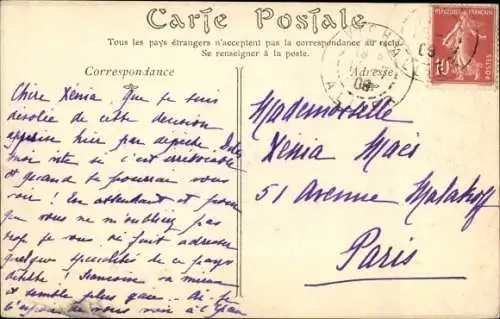 Carte Postale
Tous les pays étrangers n'acceptent pas la correspondance au recto.
Se renseigner à la poste.
Correspondance
Adresse
REPUBLIQUE FRANÇAISE
10
POSTES
08
Chère Xénia, Que je suis
désolée de cette decision
apprise hier par depeche. Dites
moi vite si c'est irrévocable
et quand je pourrai vous
voir! En attendant et pour
que vous ne m'oubliez pas
trop je vous fait adresser
quelques specialités de ce pays
Francoise va mieux
et semble plus gaie
l'espoir de vous voir à
Mademoiselle
Xénia Maës
51 Avenue Malakoff
Paris